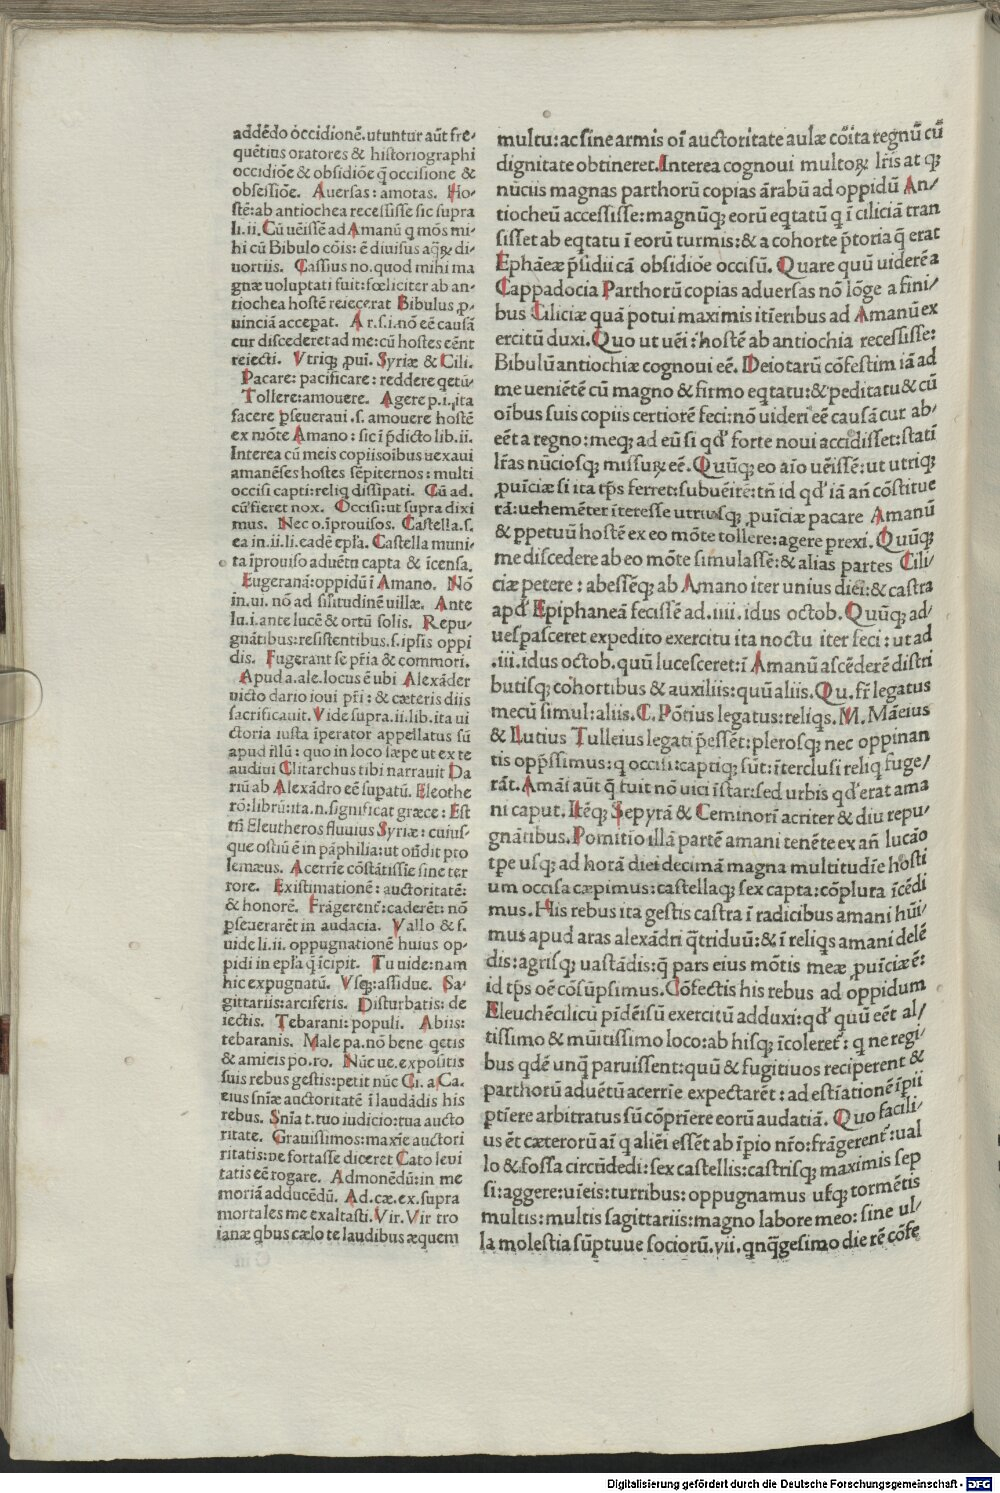 addēdo occidionē. utuntur aūt fre-
quētius oratores & historiographi
occidiōe & obsidiōe q̄ occisione &
obsessiōe. Auersas: amotas. Ho-
stē: ab antiochea recessisse sic supra
li. ii. Cū uēissē ad Amanū q mōs mi-
hi cū Bibulo cōis: ē diuisus aqꝝ di-
uortiis. Cassius no. quod mihi ma
gnæ uoluptati fuit: fœliciter ab an-
tiochea hostē reiecerat Bibulus ꝓ-
uinciā accepat. Ar. s. i. nō eē causā
cur discederet ad me: cū hostes eēnt
reiecti. Vtriqꝫ ꝓui. Syriæ & Cili.
Pacare: pacificare: reddere qetū-
Tollere: amouere. Agere p. i. ita
facere pseueraui. s. amouere hostē
ex mōte Amano: sic i p̄dicto lib. ii.
Interea cū meis copiis oībus uexaui
amanēses hostes sēpiternos: multi
occisi capti: reliq dissipati. Cū ad.
cū fieret nox. Occisi: ut supra dixi
mus. Nec o. īprouisos. Castella. s.
ea in. ii. li. eadē epła. Castella muni-
ta īprouiso aduētu capta & īcensa.
Eugeranā: oppidū ī Amano. Nō
in. ui. nō ad sisitudinē uillæ. Ante
lu. i. ante lucē & ortū solis. Repu-
gnātibus: resistentibus. s. ipsis oppi
dis. Fugerant se pr̄ia & commori.
Apud a. ale. locus ē ubi Alexāder
uicto dario ioui pr̄i: & cæteris diis
sacrificauit. Vide supra. ii. lib. ita ui
ctoria iusta īperator appellatus sū
apud illū: quo in loco sæpe ut ex te
audiui Clitarchus tibi narrauit Da
riū ab Alexādro eē supatū. Eleothe
rō: librū: ita. n. significat græce: Est
tn̄ Eleutheros fluuius Syriæ: cuius-
que ostiū ē in pāphilia: ut oñdit pto
lemæus. Acerrīe cōstātissīe sine ter
rore. Existimationē: auctoritatē:
& honorē. Frāgerent̄: caderēt: nō
pseuerarēt in audacia. Vallo & f.
uide li. ii. oppugnationē huius op-
pidi in epła q̄ īcipit. Tu uide: nam
hic expugnatū. Vsqꝫ: assidue. Sa-
gittariis: arciferis. Disturbatis: de
iectis. Tebarani: populi. Abiis:
tebaranis. Male pa. nō bene qetis
& amicis po. ro. Nūc ue. expositis
suis rebus gestis: petit nūc Ci. a Ca.
eius sniæ auctoritatē ī laudādis his
rebus. Snīa t. tuo iudicio: tua aucto
ritate. Grauissimos: maxīe auctori
ritatis: ne fortasse diceret Cato leui
tatis eē rogare. Admonēdū: in me
moriā adducēdū. Ad. cæ. ex. supra
mortales me exaltasti. Vir. Vir tro
ianæ qbus cælo te laudibus æquem
multu: ac sine armis oī auctoritate aulæ cōīta regnū cū
dignitate obtineret. Interea cognoui multoꝝ lr̄is atqꝫ
nūciis magnas parthorū copias ārabū ad oppidū An-
tiocheū accessisse: magnūqꝫ eorū eqtatū q ī ciliciā tran
sisset ab eqtatu ī eorū turmis: & a cohorte p̄toria q̄ erat
Ephāeæ p̄sidii cā obsidiōe occisū. Quare quū uiderē a
Cappadocia Parthorū copias aduersas nō lōge a fini-
bus Ciliciæ quā potui maximis itīeribus ad Amanū ex
ercitū duxi. Quo ut uēi: hostē ab antiochia recessisse:
Bibulū antiochiæ cognoui eē. Deiotarū cōfestim iā ad
me ueniētē cū magno & firmo eqtatu: & peditatu & cū
oībus suis copiis certiorē feci: nō uideri eē causā cur ab-
eēt a regno: meqꝫ ad eū si qd̓ forte noui accidisset: statī
lr̄as nūciosqꝫ missuꝝ eē. Quūqꝫ eo aīo uēissē: ut utriqꝫ
ꝓuīciæ si ita tp̄s ferret: subuēirē: tn̄ id qd̓ iā añ cōstitue
rā: uehemēter īteresse utriusqꝫ ꝓuīciæ pacare Amanū
& ppetuū hostē ex eo mōte tollere: agere prexi. Quūqꝫ
me discedere ab eo mōte simulassē: & alias partes Cili-
ciæ petere: abessēqꝫ ab Amano iter unius diei: & castra
apd̓ Epiphaneā fecissē ad. iiii. idus octob. Quūqꝫ ad-
uespasceret expedito exercitu ita noctu iter feci: ut ad
.iii. idus octob. quū lucesceret: ī Amanū ascēderē distri
butisqꝫ cohortibus & auxiliis: quū aliis. Qu. fr̄ legatus
mecū simul: aliis. C. Pōtius legatus: reliqs. M. Māeius
& Lutius Tulleius legati p̄essēt: plerosqꝫ nec oppinan
tis opp̄ssimus: q occisi: captiqꝫ sūt: īterclusi reliq fuge-
rāt. Amāi aūt q̄ fuit nō uici īstar: sed urbis qd̓ erat ama
ni caput. Itēqꝫ Sepyrā & Ceminorī acriter & diu repu-
gnātibus. Pomitio illā partē amani tenēte ex añ lucāo
tpe usqꝫ ad horā diei decimā magna multitudīe hosti
um occisa cæpimus: castellaqꝫ sex capta: cōplura īcēdi
mus. His rebus ita gestis castra ī radicibus amani hūi-
mus apud aras alexādri q̄triduū: & ī reliqs amani delē
dis: agrisqꝫ uastādis: q̄ pars eius mōtis meæ ꝓuīciæ ē:
id tp̄s oē cōsūpsimus. Cōfectis his rebus ad oppidum
Eleuchēcilicū pīdēisū exercitū adduxi: qd̓ quū eēt al-
tissimo & mūitissimo loco: ab hisqꝫ īcoleret̄: q ne regi-
bus qdē unq̄ paruissent: quū & fugitiuos reciperent &
parthorū aduētū acerrīe expectarēt: ad estīationē īpii
ptīere arbitratus sū cōprīere eorū audatiā. Quo facili-
us ēt cæterorū aī q aliēi essēt ab īpio nr̄o: frāgerent̄: ual
lo & fossa circūdedi: sex castellis: castrisqꝫ maximis sep
si: aggere: uīeis: turribus: oppugnamus usqꝫ tormētis
multis: multis sagittariis: magno labore meo: sine ul-
la molestia sūptuue sociorū. vii. qnq̄gesimo die rē cōfe
Digitalisierung gefördert durch die Deutsche Forschungsgemeinschaft - DFG